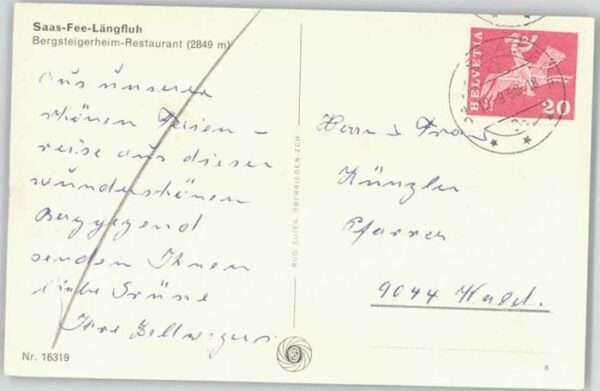 Saas-Fee-Längfluh
Bergsteigerheim-Restaurant (2849 m)
Aus unserer
schönen Ferien-
reise aus dieser
wunderschönen
Berggegend
senden Ihnen
liebe Grüsse
Ihre Hellwigers
Herrn & Frau
Künzler
Pfarrer
9044 Wald.
HELVETIA
20
RUD. SUTER, OBERRIEDEN-ZCH
Nr. 16319